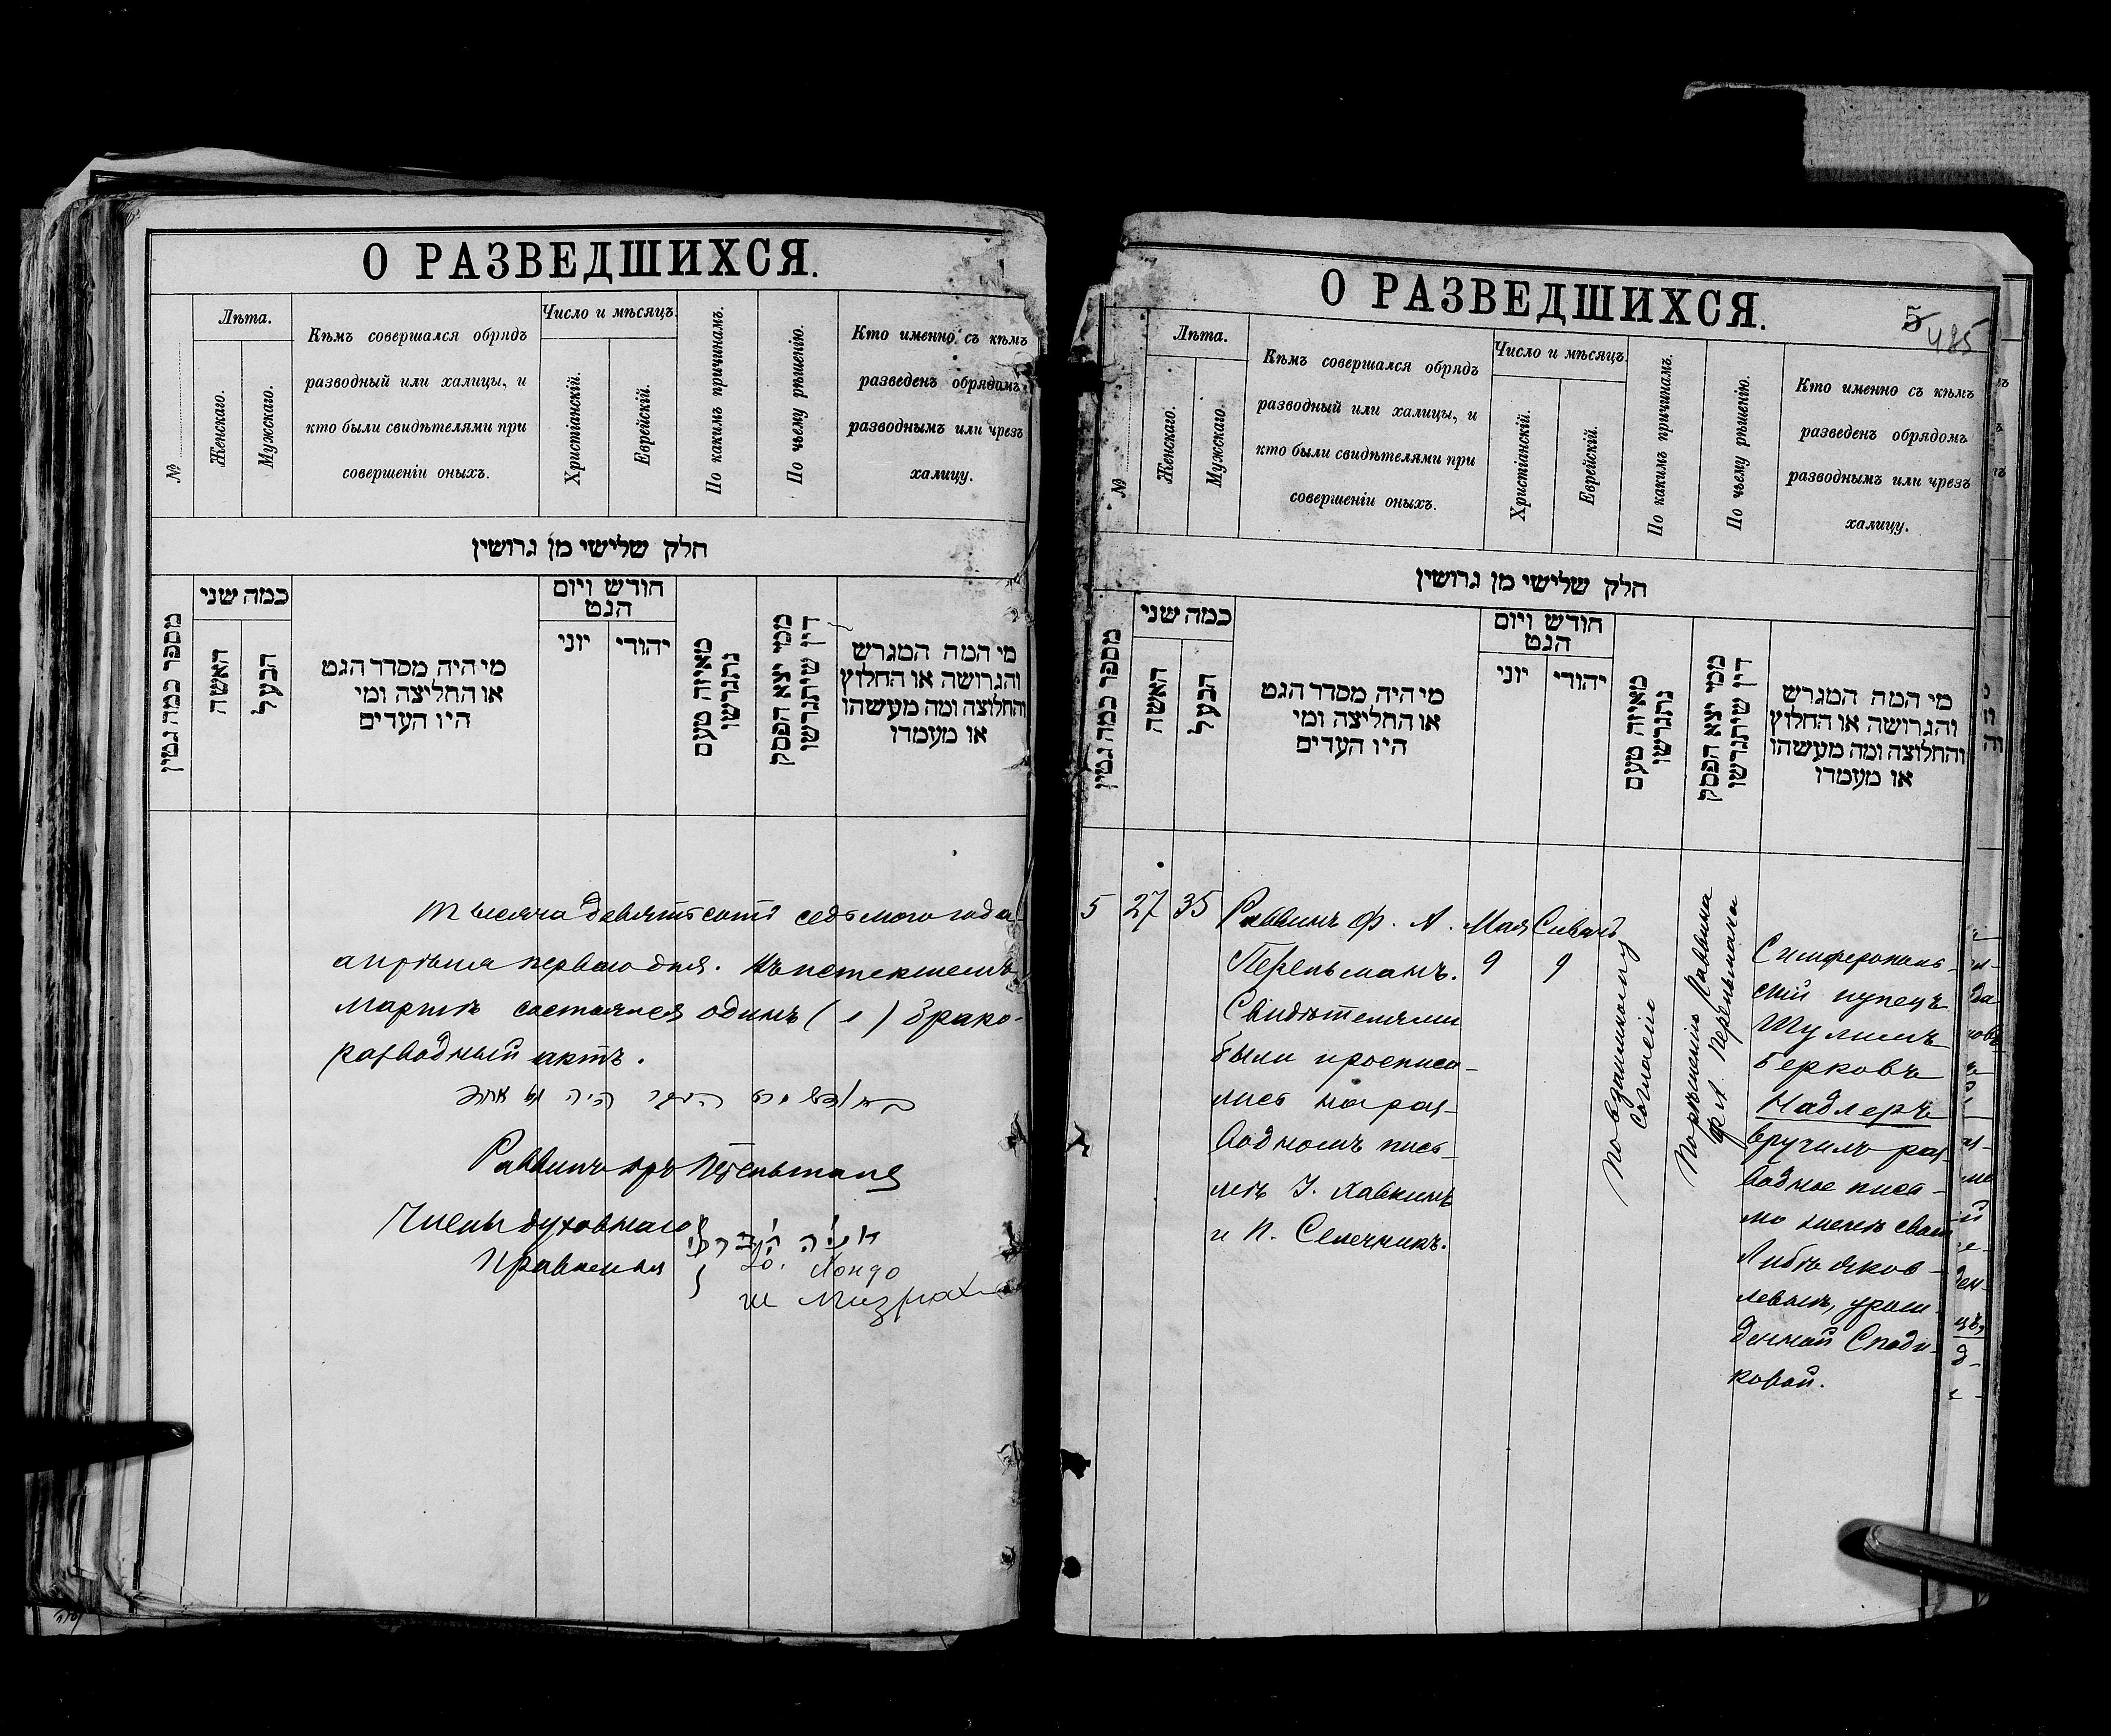 О РАЗВЕДШИХСЯ.
№
Лѣта.
Женскаго.
Мужскаго.
Кѣмъ совершался обрядъ
разводный или халицы, и
кто были свидѣтелями при
совершеніи оныхъ.
Число и мѣсяцъ.
Христіанскій.
Еврейскій.
По какимъ причинамъ.
По чьему рѣшенію.
Кто именно съ кѣмъ
разведенъ обрядомъ
разводнымъ или чрезъ
халицу.
חלק שלישי מן גרושין
מספר כמה גטין
כמה שני
האשה
הבעל
מי היה מסדר הגט
או החליצה ומי
היו העדים
חודש ויום
הגט
יוני
יהודי
מאיזה טעם
נתגרשו
ממי יצא הפסק
דין שיתגרשו
מי המה המגרש
והגרושה או החלוץ
והחלוצה ומה מעשהו
או מעמדו
Тысяча девятьсотъ седьмого года
апрѣля перваго дня. Въ истекшемъ
мартѣ состоялся одинъ (1) брако-
разводный актъ.
היה
Раввинъ Перельманъ
Члены духовнаго
Правленія
Лондо
Ш Мизрах
О РАЗВЕДШИХСЯ.
5
485
№
Лѣта.
Женскаго.
Мужскаго.
Кѣмъ совершался обрядъ
разводный или халицы, и
кто были свидѣтелями при
совершеніи оныхъ.
Число и мѣсяцъ.
Христіанскій.
Еврейскій.
По какимъ причинамъ.
По чьему рѣшенію.
Кто именно съ кѣмъ
разведенъ обрядомъ
разводнымъ или чрезъ
халицу.
חלק שלישי מן גרושין
מספר כמה גטין
כמה שני
האשה
הבעל
מי היה מסדר הגט
או החליצה ומי
היו העדים
חודש ויום
הגט
יוני
יהודי
מאיזה טעם
נתגרשו
ממי יצא הפסק
דין שיתגרשו
מי המה המגרש
והגרושה או החלוץ
והחלוצה ומה מעשהו
או מעמדו
5
27
35
Раввинъ Ф. А.
Перельманъ.
Свидѣтелями
были
лись на раз-
водномъ пись-
мѣ І. Хавкинъ
и П. Селечникъ.
Мая
9
Сиванъ
9
По взаимному
согласію
По рѣшенію Раввина
Ф. А. Перельмана
Симферополь-
скій купецъ
Шулимъ
Берковъ
Надлеръ
вручилъ раз-
водное пись-
мо женѣ своей
Либѣ Яков-
левнѣ, урож-
денной Споди-
ковой.